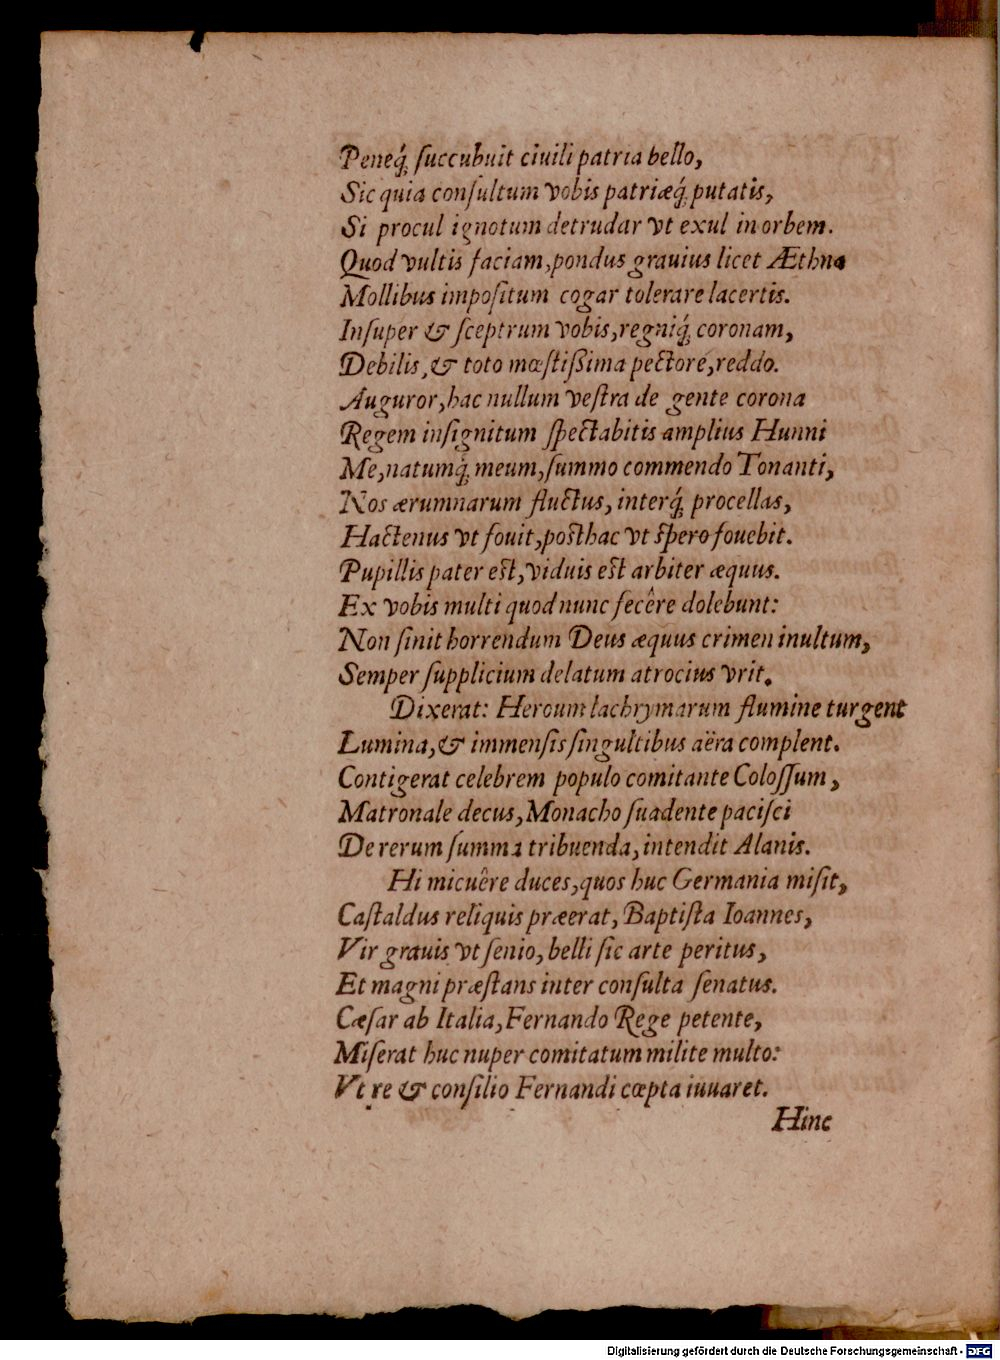 Peneq́; ſuccubuit ciuili patria bello,
Sic quia conſultum vobis patriæq́; putatis,
Si procul ignotum detrudar vt exul in orbem.
Quod vultis faciam, pondus grauius licet Æthna
Mollibus impoſitum cogar tolerare lacertis.
Inſuper & ſceptrum vobis, regniq́; coronam,
Debilis, & toto mœſtißima pectore, reddo.
Auguror, hac nullum veſtra de gente corona
Regem inſignitum ſpectabitis amplius Hunni
Me, natumq́; meum, ſummo commendo Tonanti,
Nos ærumnarum fluctus, interq́; procellas,
Hactenus vt fouit, poſthac vt ſpero fouebit.
Pupillis pater eſt, viduis eſt arbiter æquus.
Ex vobis multi quod nunc fecêre dolebunt:
Non ſinit horrendum Deus æquus crimen inultum,
Semper ſupplicium delatum atrocius vrit.
Dixerat: Heroum lachrymarum flumine turgent
Lumina, & immenſis ſingultibus aëra complent.
Contigerat celebrem populo comitante Coloſſum,
Matronale decus, Monacho ſuadente paciſci
De rerum ſumma tribuenda, intendit Alanis.
Hi micuêre duces, quos huc Germania miſit,
Caſtaldus reliquis præerat, Baptiſta Ioannes,
Vir grauis vt ſenio, belli ſic arte peritus,
Et magni præſtans inter conſulta ſenatus.
Cæſar ab Italia, Fernando Rege petente,
Miſerat huc nuper comitatum milite multo:
Vt re & conſilio Fernandi cœpta iuuaret.
Hinc
Digitalisierung gefördert durch die Deutsche Forschungsgemeinschaft - DFG